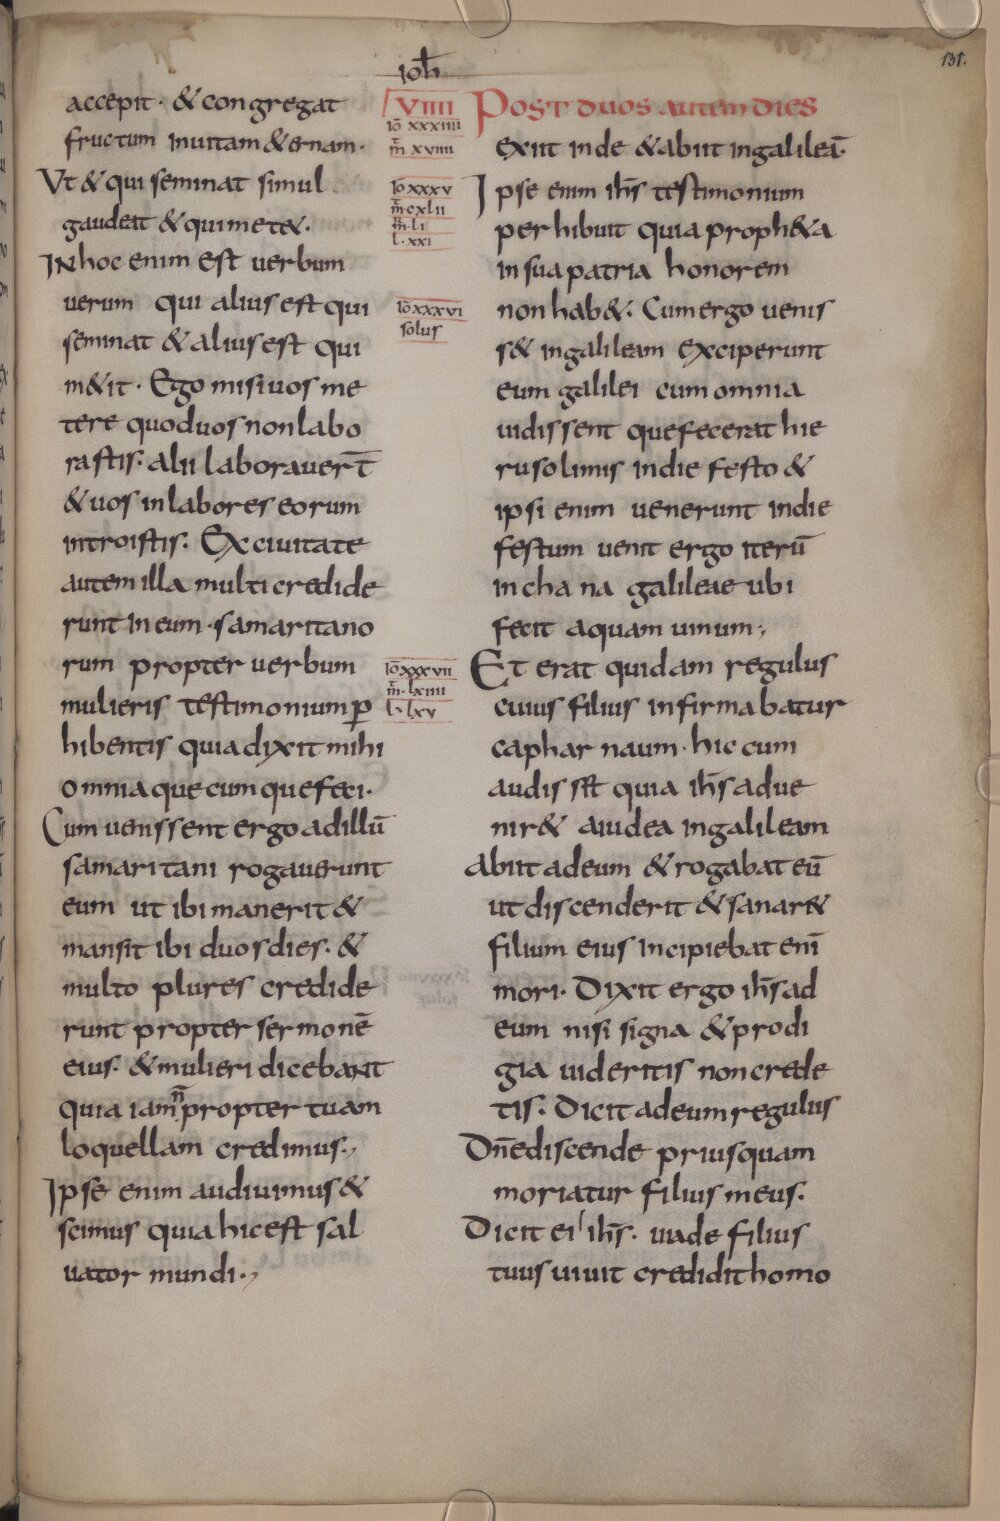 131.
ioh̅
accepit · & congregat
fructum inuitam & ernam ·
Vt & qui seminat simul
gaudeat & qui met&.
IN hoc enim est uerbum
uerum qui alius est qui
seminat & alius est qui
m&it · Ego misi uos me
tere quod uos non labo
rastis · alii laborauer̅t
& uos in labores eorum
introistis · Ex ciuitate
autem illa multi credide
runt in eum · samaritano
rum propter uerbum
mulieris testimonium p̲
hibentis quia dixit mihi
omnia quecumque feci ·
Cum uenissent ergo ad illū
samaritani rogauerunt
eum ut ibi manerit &
mansit ibi duos dies · &
multo plures credide
runt propter sermonē
eius · & mulieri dicebant
quia iam n̅ propter tuam
loquellam credimus ·,
Ipse enim audiuimus &
scimus quia hic est sal
uator mundi ·,
VIIII
iō xxxiiii
m̄ xviiii
iō xxxv
m̄ cxlii
m̄ · li
l · xxi
iō xxxvi
solus
iō xxxvii
m̄ · lxiiii
l · lxv
Post duos autem dies
exiit inde & abiit in galileā ·
Ipse enim ih̅s testimonium
perhibuit quia proph&a
in sua patria honorem
non hab& · Cum ergo uenis
s& in galileam exciperunt
eum galilei cum omnia
uidissent que fecerat hie
rusolimis in die festo &
ipsi enim uenerunt in die
festum uenit ergo iterū
in chana galileae ubi
fecit aquam uinum ·,
Et erat quidam regulus
cuius filius infirmabatur
capharnaum · hic cum
audiss&t quia ih̅s adue
nir& a iudea in galileam
Abiit ad eum & rogabat eū
ut discenderit & sanar&
filium eius incipiebat enī
mori · Dixit ergo ih̅s ad
eum nisi signa & prodi
gia uideritis non crede
tis · Dicit ad eum regulus
Dn̅e discende priusquam
moriatur filius meus ·
Dicit ei ih̅s · uade filius
tuus uiuit credidit homo